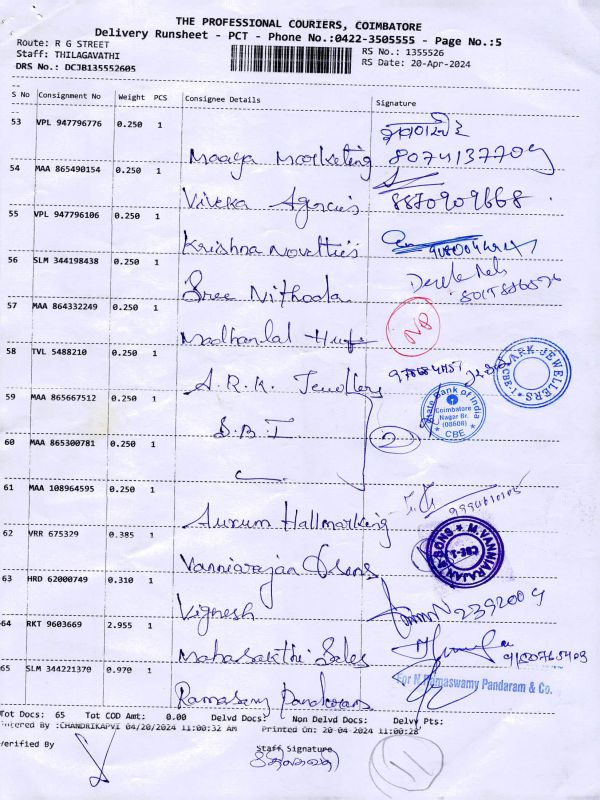 THE PROFESSIONAL COURIERS, COIMBATORE
Delivery Runsheet - PCT - Phone No.:0422-3505555 - Page No.:5
Route: R G STREET
RS No.: 1355526
Staff: THILAGAVATHI
RS Date: 20-Apr-2024
DRS No.: DCJB135552605
S No Consignment No Weight PCS Consignee Details Signature
53 VPL 947796776 0.250 1
Maaya Marketing
54 MAA 865490154 0.250 1
Viveka Agencies 8870909668
55 VPL 947796106 0.250 1
Krishna Novelties
56 SLM 344198438 0.250 1
Sree Nithoda
57 MAA 864332249 0.250 1
Madhanlal
58 TVL 5488210 0.250 1
A.R.K. Jewellery
ARK-JEWELLERS
59 MAA 865667512 0.250 1
S.B.I
State Bank of India
Coimbatore
Nagar Br.
(08608)
CBE
2
60 MAA 865300781 0.250 1
61 MAA 108964595 0.250 1
Aurum Hallmarking
62 VRR 675329 0.385 1
Vanniarajan & Sons
M.VANNIARAJAN & SONS
CBE-1
63 HRD 62000749 0.310 1
Vignesh
64 RKT 9603669 2.955 1
Mahasakthi Sales
65 SLM 344221370 0.970 1
For N.Ramaswamy Pandaram & Co.
Ramasamy Pandaram
Tot Docs: 65 Tot COD Amt: 0.00 Delvd Docs: Non Delvd Docs: Delvy Pts:
Entered By :CHANDRIKAPVI 04/20/2024 11:00:32 AM Printed On: 20-04-2024 11:00:28
Verified By
Staff Signature
11